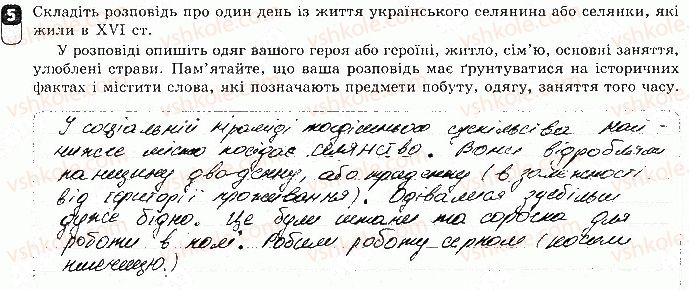 5 Складіть розповідь про один день із життя українського селянина або селянки, які
жили в XVI ст.
У розповіді опишіть одяг вашого героя або героїні, житло, сім’ю, основні заняття,
улюблені страви. Пам’ятайте, що ваша розповідь має ґрунтуватися на історичних
фактах і містити слова, які позначають предмети побуту, одягу, заняття того часу.
У соціальній піраміді тогочасного суспільства най-
нижче місце посідає селянство. Вони відробляли
панщину дводенну, або триденну (в залежності
від території проживання). Одівалися здебільш
дуже бідно. Це були штани та сорочка для
роботи в полі. Робили роботу серпом (косили
пшеницю.)